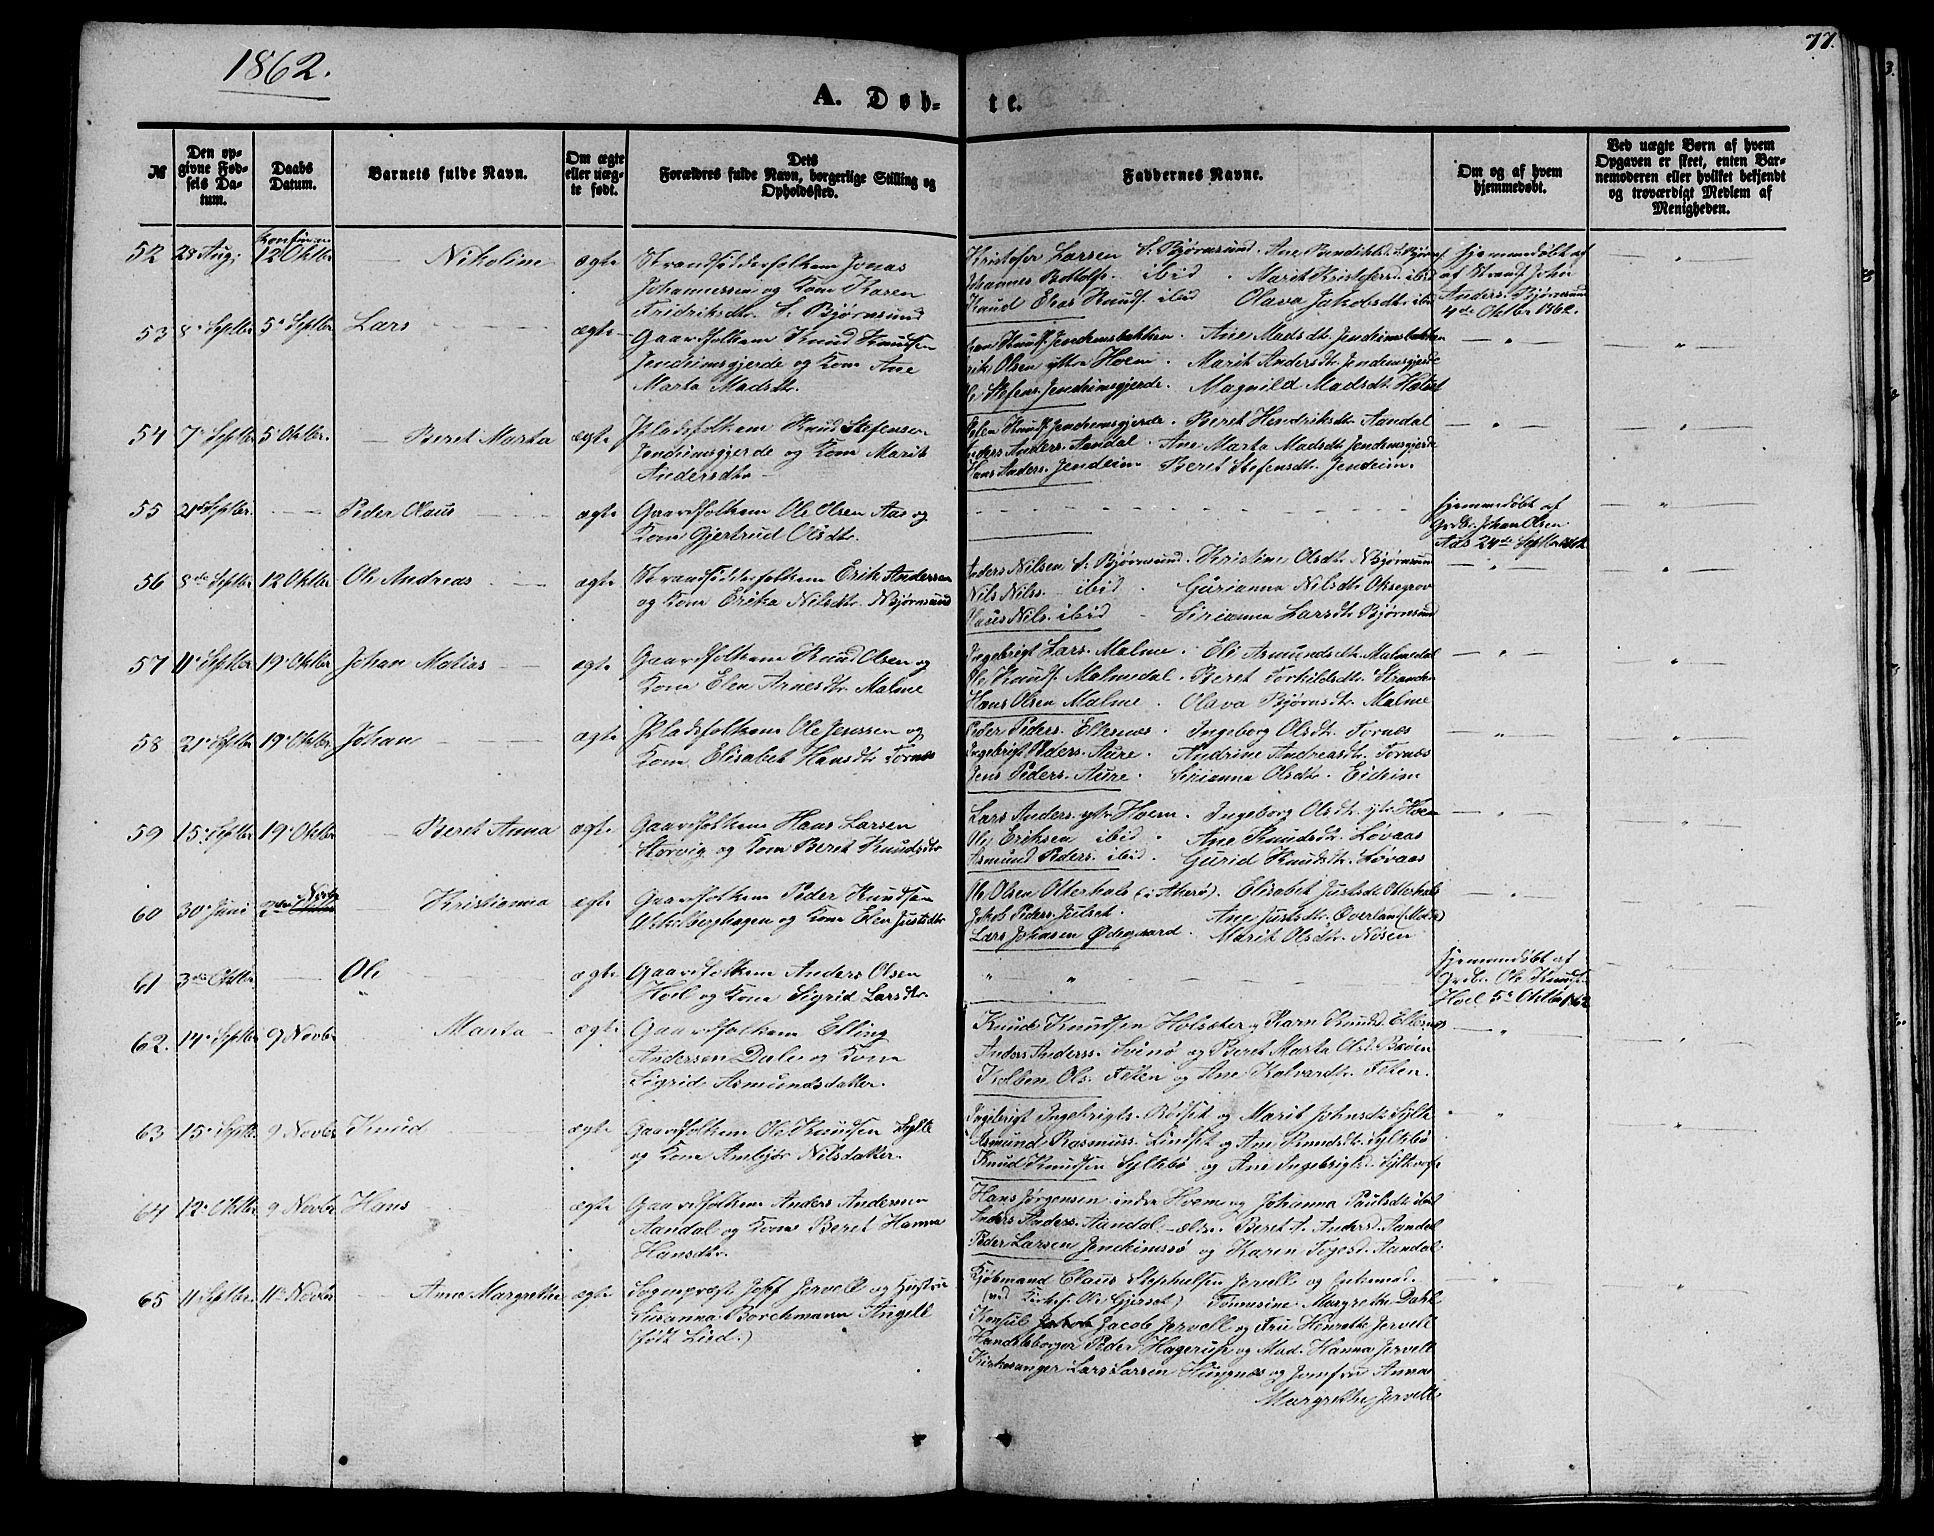 1862.
77.
A. Døb-
te.
№
Den op-
givne Fød-
sels Da-
tum.
Daabs
Datum.
Barnets fulde Navn.
Om ægte
eller uæg-
te født.
Dets
Forældres fulde Navn, borgerlige Stilling og
Opholdssted.
Faddernes Navne.
Om og af hvem
hjemmedøbt.
Ved uægte Børn af hvem
Opgaven er skeet, enten Bar-
nemoderen eller hvilket bekjendt
og troværdigt Medlem af
Menigheden.
52 28 Aug: 12 Oktbr Nikoline ægte Strandsidderfolkene Jonas
Johannessen og Kone Karen
Fridriksdtr. S. Bjørnsund
Kristofer Larsen S. Bjørnsund. Ane Bendiktsd. S. Bjørns
Johannes Bottolfs. ibid. Marit Kristofersd. ibid
Knud Elias Knuds. ibid Olava Jakobsdtr. ibid
hjemmedøbt af
af Strands. John
Anders. Bjørnsund
4de Oktbr 1862.
53 8 Septbr 5 Septbr Lars ægte Gaardfolkene Knud Knudsen
Jendeimsgjerde og Kone Ane
Marta Madsdtr.
Knuds. Jendemsbakken. Ane Madsdtr. Jendeimsbakken
Erik Olsen ytre Hoem. Marit Andersdtr. Jendemsgjerde
Ole Stefens. Jendeimsgjerde. Magnild Madsdtr. Holset
54 7 Septbr 5 Oktbr. Beret Marta ægte Pladsfolkene Knud Stefensen
Jendeimsgjerde og Kone Marit
Andersdtr
Knuds. Jendemsgjerde. Beret Hendriksdtr. Aandal
Anders Anders. Aandal. Ane Marta Madsdtr. Jendemsgjerde
Hans Anders. Jendeim Beret Stefensdtr. Jendeim.
55 21 Septbr. Peder Olaus ægte Gaardfolkene Ole Olsen Aas og
Kone Gjertrud Olsdtr.
hjemmedøbt af
Grdbr. Johan Olsen
Aas 24de Septbr 1862
56 8de Septbr 12 Oktbr Ole Andreas ægte Strandsidderfolkene Erik Andersen
og Kone Erika Nilsdtr. N. Bjørnsund
Anders Nilsen S. Bjørnsund. Kristine Olsdtr. N Bjørnsund
Nils Nils. ibid. Gurianna Nilsdtr. Oksegrov
Claus Nils. ibid Sirianna Larsdtr. Bjørnsund
57 11 Septbr 19 Oktbr Johan Matias ægte Gaardfolkene Knud Olsen og
Kone Elen Arnesdtr. Malme
Ingebrigt Lars. Malme. Eli Asmundsdtr. Malmedal
Ole Knuds. Malmedal. Beret Torkildsdtr. Stranden
Hans Olsen Malme. Olava Bjørnsdtr. Malme
58 21 Septbr 19 Oktbr Johan ægte Pladsfolkene Ole Jenssen og
Kone Elisabet Hansdtr Tornæs
Peder Peders. Ellesnes. Ingeborg Olsdtr. Tornæs
Ingebrigt Peders. Aure. Andrine Andreasdtr. Tornæs
Jens Peders. Aure. Sirianna Olsdtr. Eideim
59 15 Septbr 19 Oktbr Beret Anna ægte Gaardfolkene Hans Larsen
Storvig og Kone Beret Knudsdtr
Lars Anders. ytr. Hoem. Ingeborg Olsdtr. ytr. Hoem
Ole Eriksen ibid. Ane Knudsdtr. Lovaas
Asmund Peders. ibid. Gurid Knudsdtr. Lovaas
60 30 Juni 2den Novbr Kristianna ægte Gaardfolkene Peder Knudsen
og Kone Elen Justsdtr
Ole Olsen Otterhals (i Akerø). Elisabet Justsdtr. Otterhals
Jakob Peders. Julset. Ane Justsdtr. Overland (Molde)
Lars Johnsen Ødegaard. Marit Olsdtr. Nøsen
61 3de Oktbr Ole ægte Gaardfolkene Anders Olsen
Hoel og Kone Sigrid Larsdtr.
hjemmedøbt af
Grdbr. Ole Knuds.
Hoel 5 Oktbr 1862
62. 14 Septbr 9 Novbr Marta ægte Gaardfolkene Elling
Andersen Dale og Kone
Sigrid Asmundsdatter.
Knud Knudsen Holsæter og Karn Knudsd. Ellesnes
Anders Anderss. Svinø og Beret Marta Olsd. Brøen
Kolben Ols. Feten og Ane Halvardtr. Feten.
63 15 Septbr. 9 Novbr Knud ægte Gaardfolkene Ole Knudsen Sylte
og Kone Ambjør Nilsdatter.
Ingebrigt Ingebrigts. Bøiset og Marit Johnsdtr Sylte
Asmund Rasmuss. Lindset og Ane Knudsdtr. Syltebø
Knud Knudsen Syltebø og Ane Ingebrigtsd.
64 12 Oktbr 9 Novbr Hans ægte Gaardfolkene Anders Andersen
Aandal og Kone Beret Hanna
Hansdtr.
Hans Jørgensen indre Hoem og Johanna Paulsdtr ibid
Anders Anders. Aandal ældr. Beret A. Andersd. Aandal
Peder Larsen Jendeimsø og Karen Togesd. Aandal
65 11 Septbr. 11 Novbr Anne Margrethe ægte Sogneprest Josef Jervell og Hustru
Susanna Borchmann Angell
(født Lied.)
Kjøbmand Claus Stephelsen Jervell og
(ved Ole Gjerset) Tomasine Margrethe Dahl
Konsul Jacob Jervell og Fru Henrette Jervell
Handelsborger Peder Hagerup og Mad. Hanna Jervell
Kirkesanger Lars Larsen Hungnæs og Jomfru Anna
Margrethe Jervell